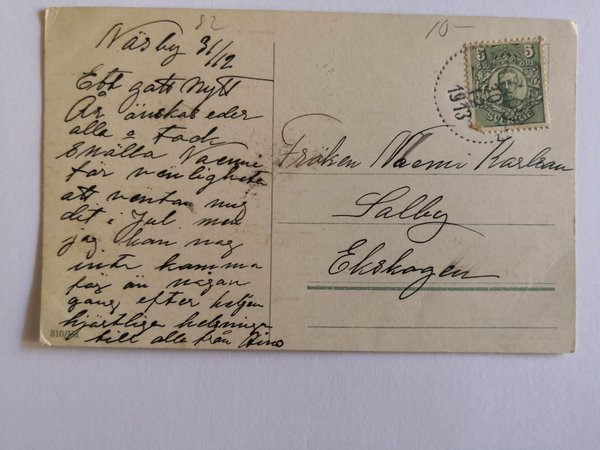 82
Näsby 31/12
Ett gått Nytt
År önskas eder
alla o Tack
snälla Naemi
för vänligheten
att väntar mig
dit i Jul men
jag kan nog
inte komma
för än någon
gång efter helgen
hjärtliga helsningar
till alla från
310/III
10-
5 5
ÖRE ÖRE
SVERIGE
1913
Fröken Naemi Karlsson
Salby
Ekskogen